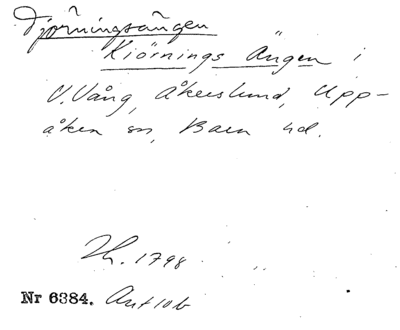 Tjörningsängen
Kiörnings Ängen i
V. Vång, Åkerslund, Upp-
åkra sn, Bara hd.
Zh. 1798
Nr 6384. Ant 10b